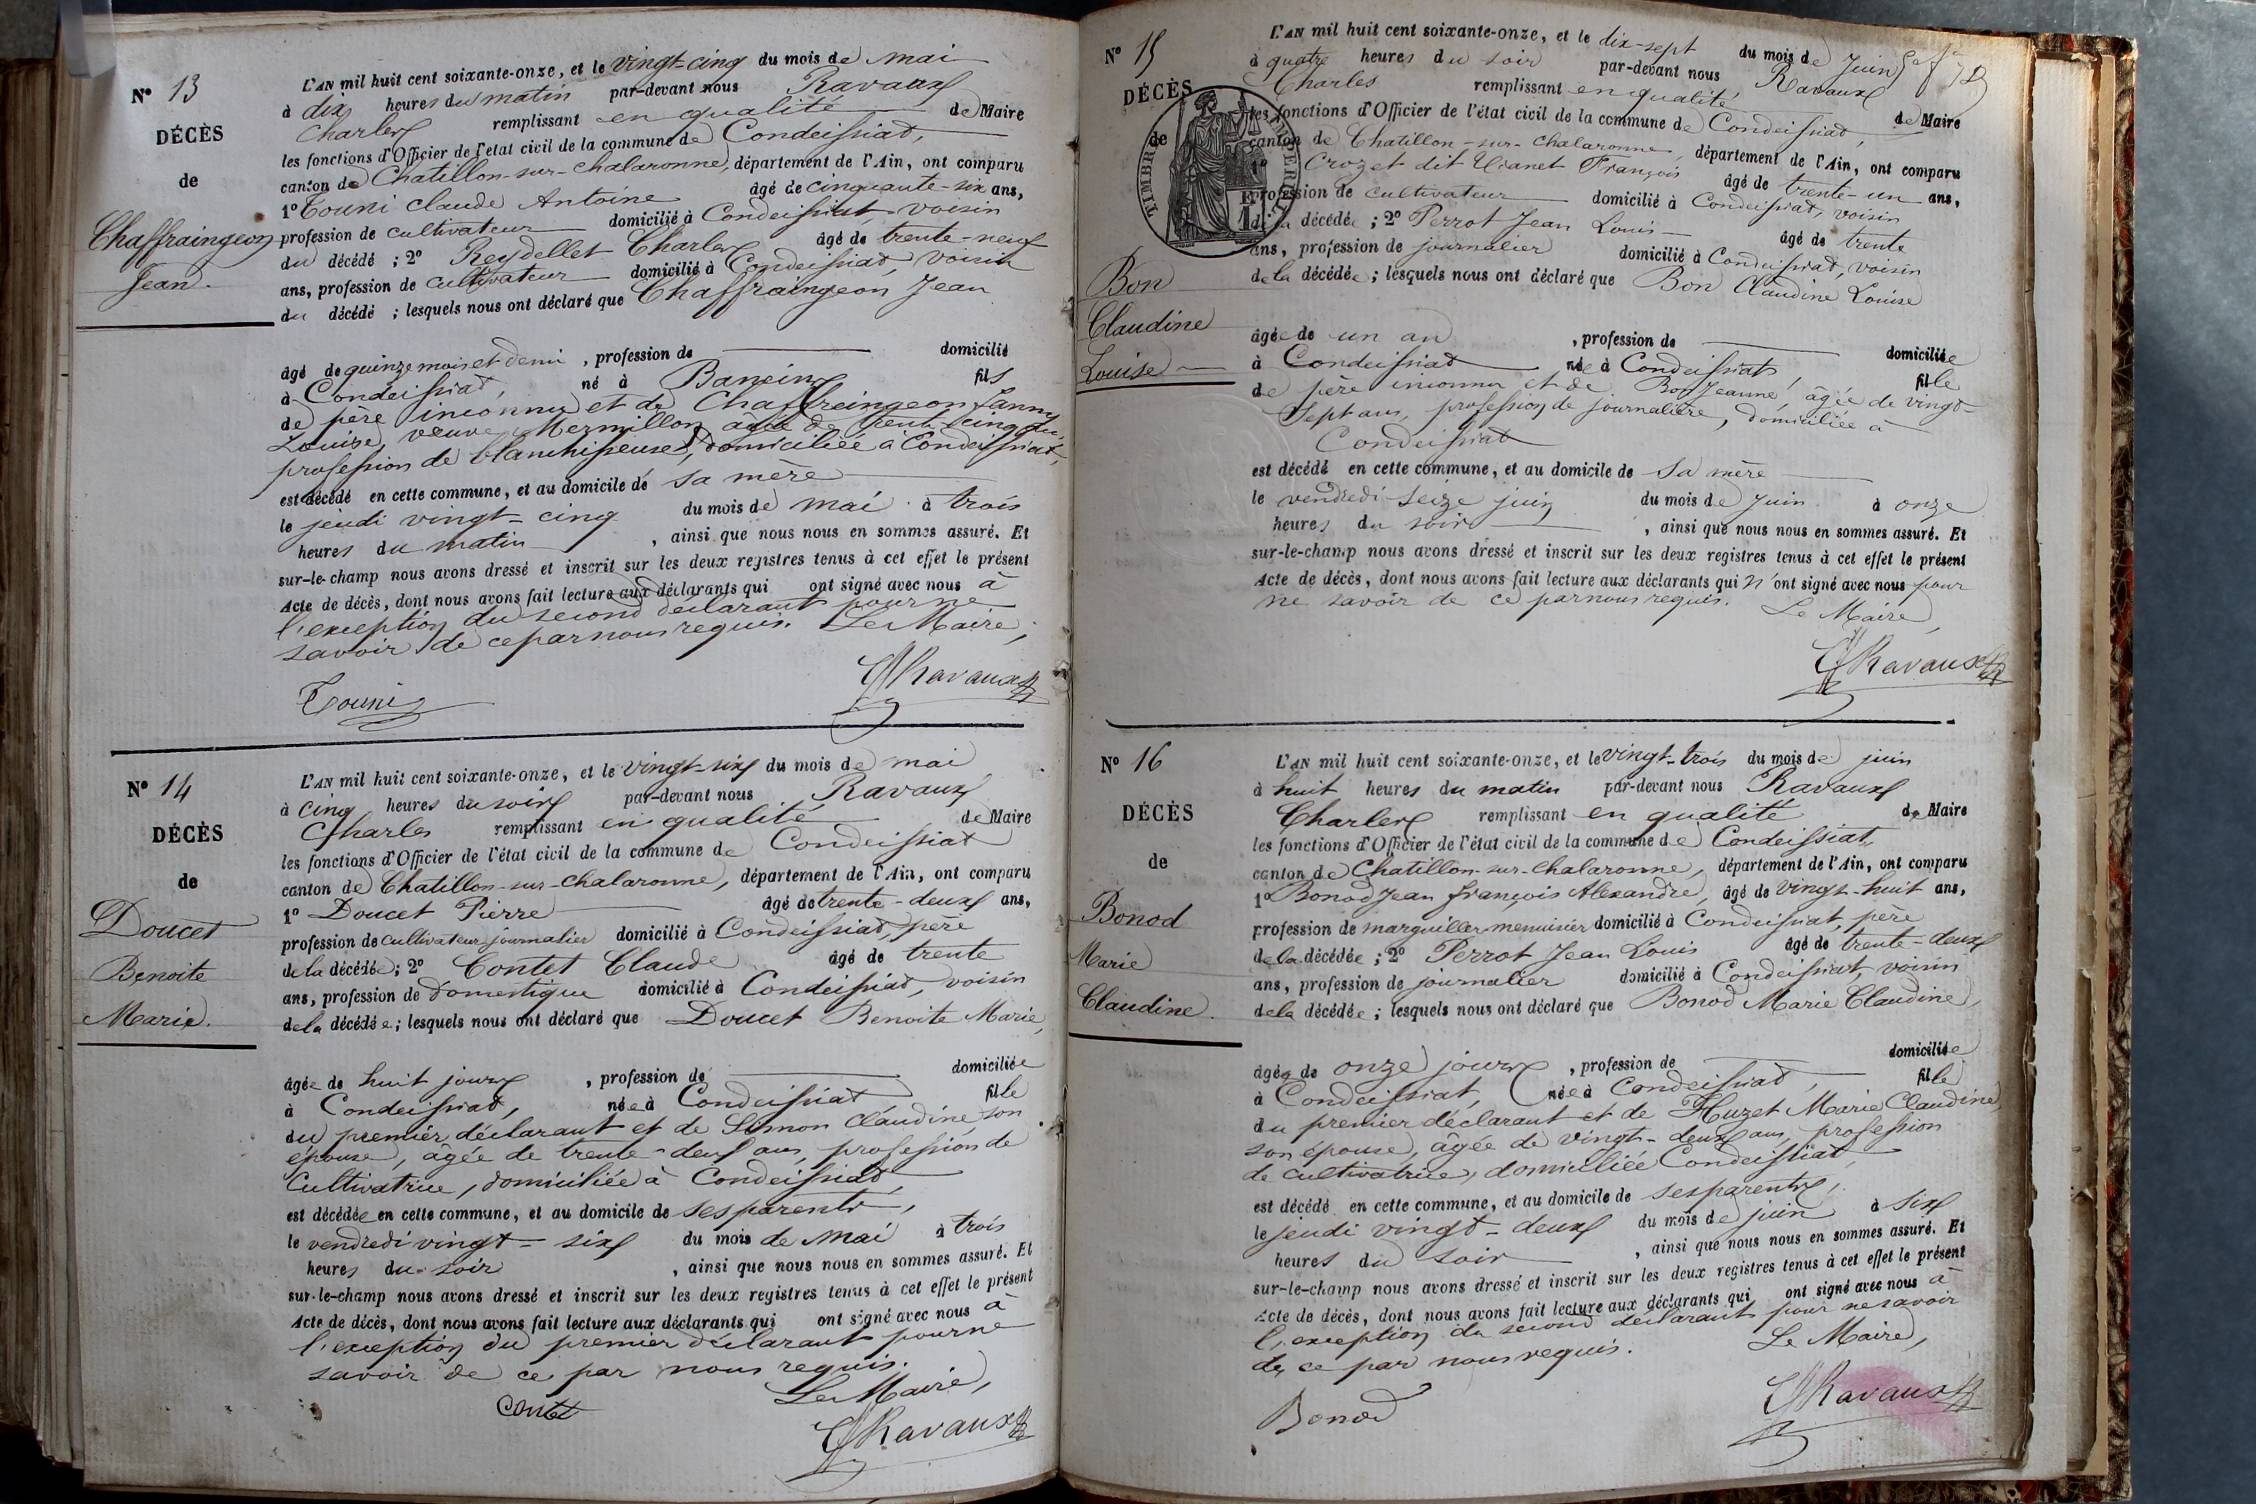 N° 13
DÉCÈS
de
Chaffraingeon
Jean.
L'AN mil huit cent soixante-onze, et le vingt-cinq du mois de mai
à dix heures du matin par-devant nous Ravaux
Charles remplissant en qualité de Maire
les fonctions d'Officier de l'état civil de la commune de Condeissiat,
canton de Chatillon-sur-chalaronne, département de l'Ain, ont comparu
1° Touni Claude Antoine âgé de cinquante-six ans,
profession de cultivateur domicilié à Condeissiat voisin
du décédé ; 2° Reydellet Charles âgé de trente-neuf
ans, profession de cultivateur domicilié à Condeissiat, voisin
du décédé ; lesquels nous ont déclaré que Chaffraingeon Jean
âgé de quinze mois et demi , profession de domicilié
à Condeissiat, né à Baneins fils
de père inconnu et de Chaffreingeon fanny
Louise, veuve Mermillon âgée de trente-cinq ans,
profession de blanchisseuse, domiciliée à Condeissiat,
est décédé en cette commune, et au domicile de sa mère
le jeudi vingt-cinq du mois de mai à trois
heures du matin , ainsi que nous nous en sommes assuré. Et
sur-le-champ nous avons dressé et inscrit sur les deux registres tenus à cet effet le présent
Acte de décès, dont nous avons fait lecture aux déclarants qui ont signé avec nous à
l'exception du second déclarant pour ne
savoir de ce par nous requis. Le Maire,
Touni ChRavaux
N° 14
DÉCÈS
de
Doucet
Benoite
Marie.
L'AN mil huit cent soixante-onze, et le vingt-six du mois de mai
à cinq heures du soir par-devant nous Ravaux
Charles remplissant en qualité de Maire
les fonctions d'Officier de l'état civil de la commune de Condeissiat
canton de Chatillon-sur-chalaronne, département de l'Ain, ont comparu
1° Doucet Pierre âgé de trente-deux ans,
profession de cultivateur journalier domicilié à Condeissiat, père
de la décédée; 2° Contet Claude âgé de trente
ans, profession de domestique domicilié à Condeissiat, voisin
de la décédée; lesquels nous ont déclaré que Doucet Benoite Marie,
âgée de huit jours , profession de domiciliée
à Condeissiat, née à Condeissiat fille
du premier déclarant et de Simon Claudine, son
épouse, âgée de trente-deux ans, profession de
Cultivatrice, domiciliée à Condeissiat,
est décédée en cette commune, et au domicile de ses parents,
le vendredi vingt-six du mois de mai à trois
heures du soir , ainsi que nous nous en sommes assuré. Et
sur-le-champ nous avons dressé et inscrit sur les deux registres tenus à cet effet le présent
Acte de décès, dont nous avons fait lecture aux déclarants qui ont signé avec nous à
l'exception du premier déclarant pour ne
savoir de ce par nous requis.
Le Maire,
Contet
ChRavaux
N° 15
DÉCÈS
de
TIMBRE IMPÉRIAL
Bon
Claudine
Louise
L'AN mil huit cent soixante-onze, et le dix-sept du mois de Juin
à quatre heures du soir par-devant nous Ravaux
Charles remplissant en qualité de Maire
les fonctions d'Officier de l'état civil de la commune de Condeissiat,
canton de Chatillon-sur-Chalaronne, département de l'Ain, ont comparu
Crozet dit Vianet François âgé de trente-un ans,
profession de cultivateur domicilié à Condeissiat, voisin
de la décédée ; 2° Perrot Jean Louis âgé de trente
ans, profession de journalier domicilié à Condeissiat, voisin
de la décédée ; lesquels nous ont déclaré que Bon Claudine Louise
âgée de un an , profession de domiciliée
à Condeissiat née à Condeissiat, fille
de père inconnu et de Bon Jeanne, âgée de vingt-
sept ans, profession de journalière, domiciliée à
Condeissiat
est décédé en cette commune, et au domicile de sa mère
le vendredi seize juin du mois de Juin à onze
heures du soir , ainsi que nous nous en sommes assuré. Et
sur-le-champ nous avons dressé et inscrit sur les deux registres tenus à cet effet le présent
Acte de décès, dont nous avons fait lecture aux déclarants qui n'ont signé avec nous pour
ne savoir de ce par nous requis. Le Maire,
ChRavaux
N° 16
DÉCÈS
de
Bonod
Marie
Claudine.
L'AN mil huit cent soixante-onze, et le vingt-trois du mois de juin
à huit heures du matin par-devant nous Ravaux
Charles remplissant en qualité de Maire
les fonctions d'Officier de l'état civil de la commune de Condeissiat,
canton de Chatillon-sur-Chalaronne, département de l'Ain, ont comparu
1° Bonod Jean françois Alexandre, âgé de vingt-huit ans,
profession de marguiller-menuisier domicilié à Condeissiat, père
de la décédée ; 2° Perrot Jean Louis âgé de trente-deux
ans, profession de journalier domicilié à Condeissiat, voisin
de la décédée ; lesquels nous ont déclaré que Bonod Marie Claudine,
âgée de onze jours , profession de domiciliée
à Condeissiat, née à Condeissiat, fille
du premier déclarant et de Huzet Marie Claudine,
son épouse, âgée de vingt-deux ans, profession
de cultivatrice, domiciliée Condeissiat,
est décédé en cette commune, et au domicile de ses parents,
le jeudi vingt-deux du mois de juin à six
heures du soir , ainsi que nous nous en sommes assuré. Et
sur-le-champ nous avons dressé et inscrit sur les deux registres tenus à cet effet le présent
Acte de décès, dont nous avons fait lecture aux déclarants qui ont signé avec nous à
l'exception du second déclarant pour ne savoir
de ce par nous requis. Le Maire,
Bonod ChRavaux